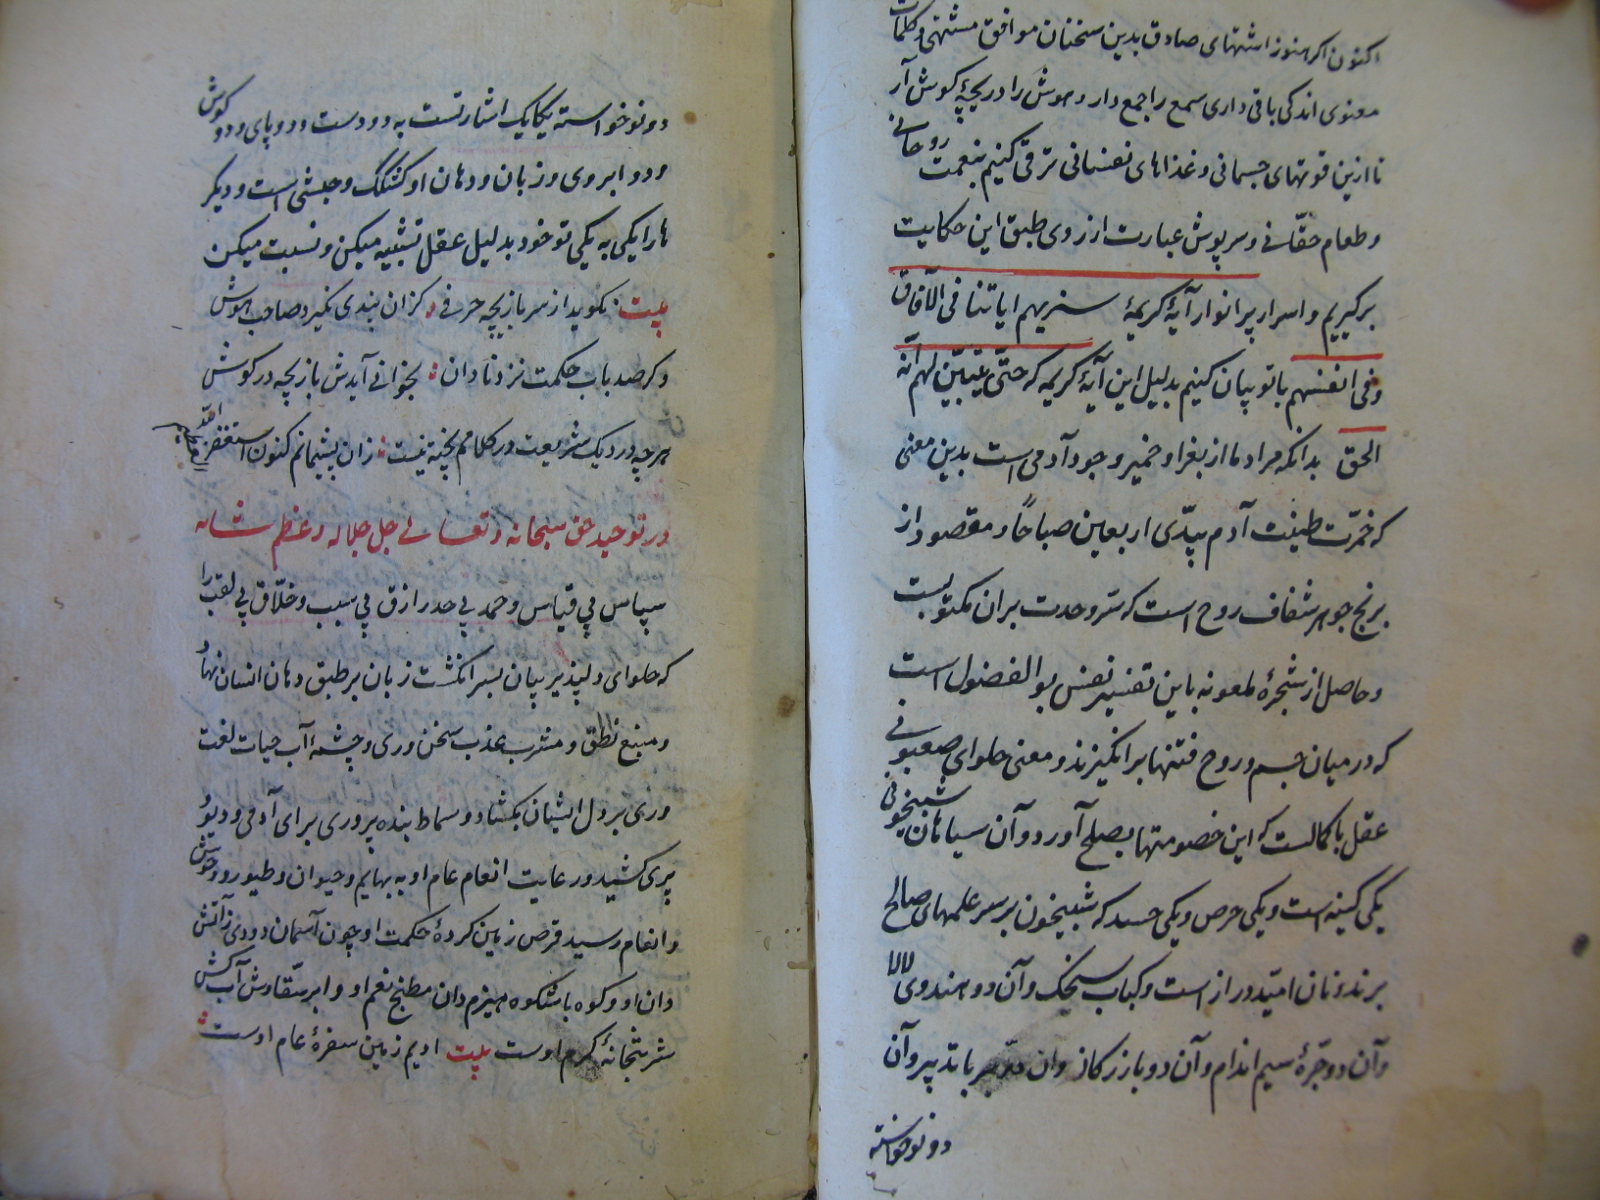 اکنون اکر هنوز اشتهای صادق بدین سخنان موافق مشتهی و کلمات
معنوی اندکی باقی داری سمع را جمع دار و هوش را دریچهٔ کوش آر
تا ازین قوتهای جسمانی و غذاهای نفسانی ترقی کنیم بنعمت روحانی
و طعام حقّانی و سرپوش عبارت از روی طبق این حکایت
برکیریم و اسرار پر انوار آیهٔ کریمهٔ سنریهم ایاتنا فی الآفاق
و فی انفسهم با تو بیان کنیم بدلیل این آیهٔ کریمه که حتّی یتبیّن لهم انّه
الحق بدانکه مراد ما از بغرا و خمیر وجود آدمی است بدین معنی
که خمّرت طینت آدم بیدّی اربعین صباحًا و مقصود از
برنج جوهر شفاف روح است که سرّ وحدت بران مکتوبست
و حاصل از شجرهٔ ملعونه باین تفسیر نفس بوالفضول است
که در میان جسم و روح فتنها برانکیزند و معنی حلوای صعبونی
عقل با کمالست که این خصومتها بصلح آورد و آن سیاهان شبیخونی
یکی کینه است و یکی حرص و یکی حسد که شبیخون بر سر علمهای صالح
برند و نان امّید دراز است و کباب سیخک و آن دو هندوی لالا
و آن دو حجرهٔ سیم اندام و آن دو بازرکان وان با تدبیر و آن
دو نوخواسته
دو نوخواسته یکایک اشارتست به دو دست و دو پای و دو کوش
و دو ابروی و زبان و دهان او کشکک و حبشی است و دیکر
ها را یکی به یکی تو خود بدلیل عقل تشبیه میکن و نسبت میکن
بیت نکوید از سر بازیچه حرفی کزان پندی نکیرد صاحب هوش
و کر صد باب حکمت نزد نادان بخوانی آیدش بازیچه در کوش
هر چه در دیک شریعت در کلامم پخته نیست زان پشیمانم کنون استغفر الله
در توحید حق سبحانه و تعالی جل جلاله و عظم شانه
سپاس بی قیاس و حمد بی حد رازق بی سبب و خلّاق بی لغب را
که حلوای دلپذیر بیان بسر انکشت زبان بر طبق دهان انسان نهاد
و منبع نطق و مشرب عذب سخن وری و چشمهٔ آب حیات لغت
وری بر دل ایشان بکشاد و سماط بنده پروری برای آدمی و دیو
پری کشید و رعایت انعام عام او به بهایم و حیوان و طیور و وحوش
و انعام رسید قرص زمین کردهٔ حکمت او چون آسمان دودی ز آتش
دان او و کوه با شکوه هیزم دان مطبخ نعم او و ابر سقّا وش آب کش
شربتخانهٔ کرم اوست بیت ادیم زمین سفرهٔ عام اوست